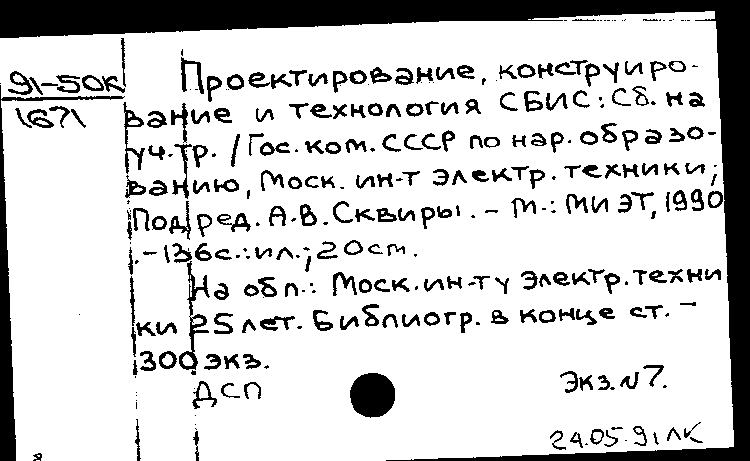 91-50К
1671
Проектирование, конструиро-
вание и технология СБИС: Сб. на
уч. тр. / Гос. ком. СССР по нар. образо-
ванию, Моск. ин-т электр. техники;
Под ред. А.В. Сквиры. - М.: МИЭТ, 1990
.- 136 с.: ил.; 20 cm.
На обл.: Моск. ин-ту электр. техни
ки 25 лет. Библиогр. в конце ст. -
300 экз.
ДСП
Экз. N 7.
24.05.91 ЛК